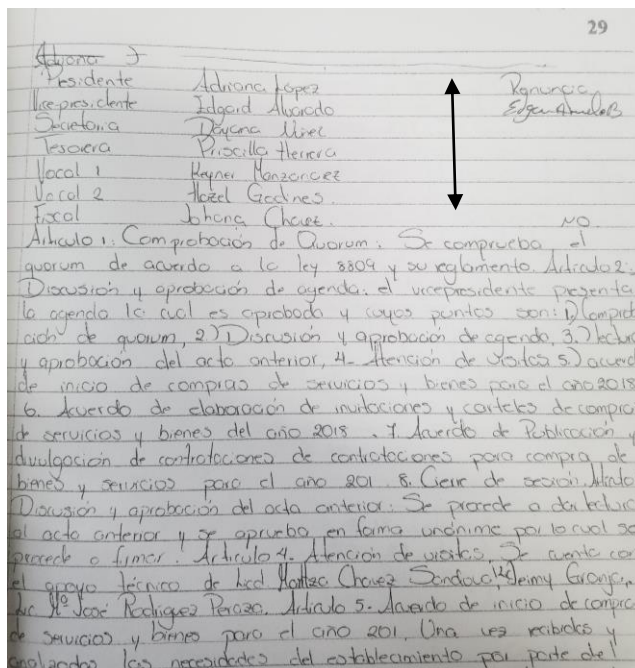 29
Adriana J
Presidente Adriana Lopez Renuncia
Vicepresidente Edgard Alvarado
Secretaria Dayana
Tesorera Priscilla Herrera
Vocal 1 Keyner Manzanarez
Vocal 2 Hazel Godines.
Fiscal Johana Chavez. NO
Articulo 1: Comprobación de Quorum: Se comprueba el
quorum de acuerdo a la ley 8809 y su reglamento Articulo 2:
Discusión y aprobación de agenda: el vicepresidente presenta
la agenda la cual es aprobada y cuyos puntos son: 1) Comprob
ción de quorum, 2) Discusión y aprobación de agenda, 3.) lectura
y aprobación del acta anterior, 4- Atención de visitas 5.) acuerdo
de inicio de compras de servicios y bienes para el año 2018
6. Acuerdo de elaboración de invitaciones y carteles de compra
de servicios y bienes del año 2018. 7. Acuerdo de Publicación y
divulgación de contrataciones de contrataciones para compra de
bienes y servicios para el año 201. 8. Cierre de sesión.
Discusión y aprobación del acta anterior: Se procede a dar lectura
al acta anterior y se aprueba en forma unánime por lo cual se
procede a firmar. Articulo 4- Atención de visitas. Se cuenta con
el apoyo técnico de Chavez
José Rodriguez Articulo 5- Acuerdo de inicio de compra
de servicios y bienes para el año 201, Una vez recibidas y
analizadas las necesidades del establecimiento por parte del